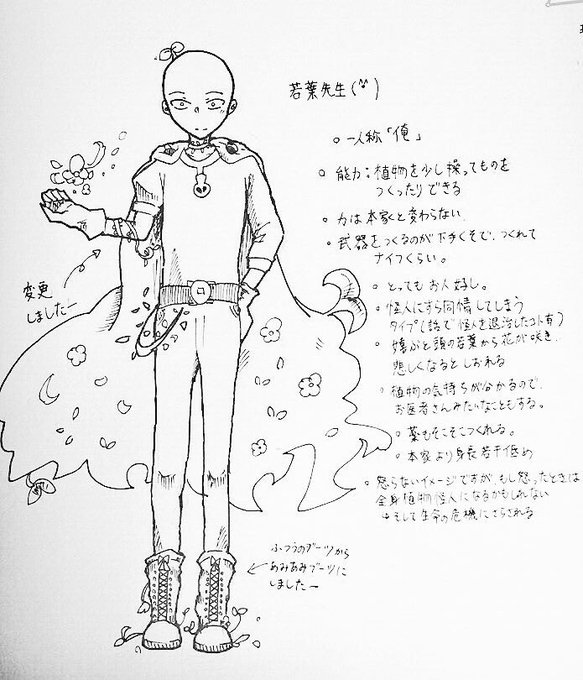 若葉先生(^^)
○一人称「俺」
○能力:植物を少し操ってものを
つくったりできる
・力は本家と変わらない
・武器をつくるのが下手くそで、つくれて
ナイフくらい。
○とってもお人好し。
○怪人にすら同情してしまう
タイプ(話で怪人を退治したコト有)
・嬉ぶと頭の若葉から花が咲き、
悲しくなるとしおれる
・植物の気持ちが分かるので、
お医者さんみたいなこともする。
○薬もそこそこつくれる。
○本家より身長若干低め
○怒らないイメージですが、もし怒ったときは
全身植物怪人になるかもしれない
そして生命の危機にさらされる
変更
しましたー
ふつうのブーツから
あみあみブーツに
しましたー